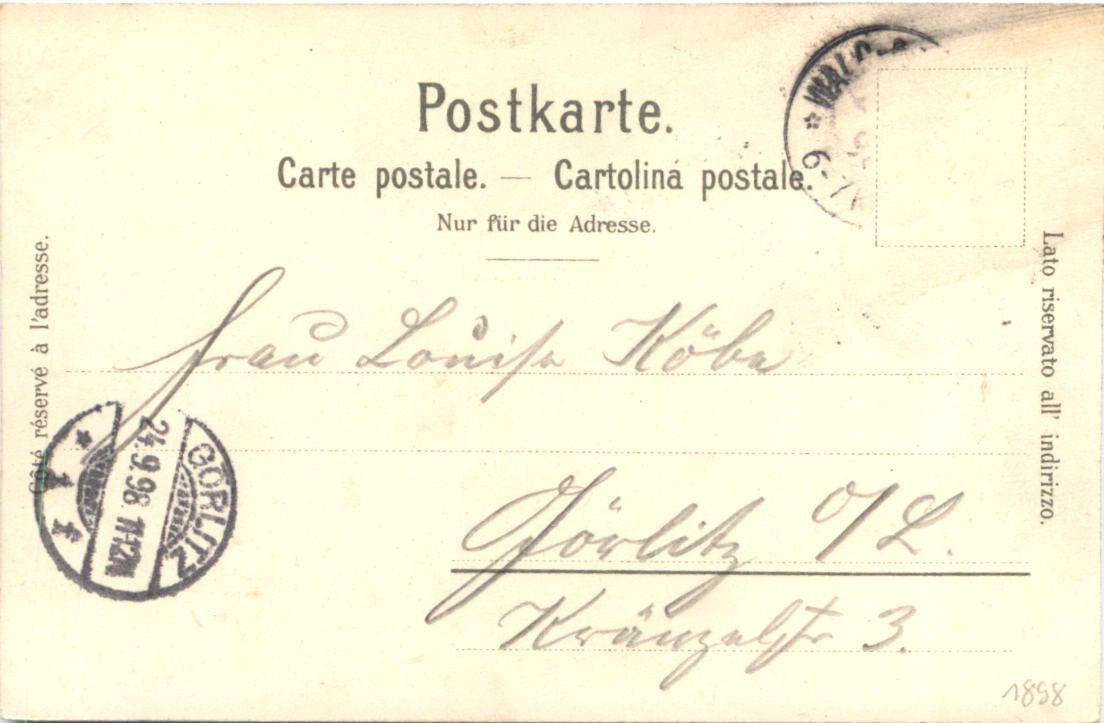 Postkarte.
Carte postale. — Cartolina postale.
Nur für die Adresse.
Côté réservé à l'adresse.
Lato riservato all' indirizzo.
Frau Louise Köbe
Görlitz O/L.
Kränzelstr 3.
GÖRLITZ
24.9.98. 11-12V.
* 1 f
6-7
1898